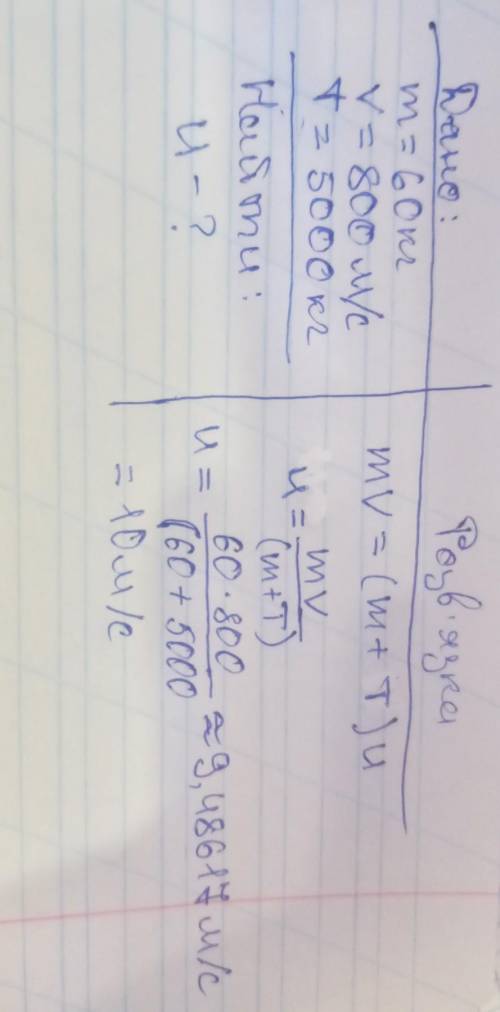 Дано:
m = 60 кг
v = 800 м/с
T = 5000 кг
Найти:
u - ?
Розв'язка
mv = (m + T)u
u = mv / (m+T)
u = 60·800 / (60 + 5000 ≈ 9,48617 м/с
= 10 м/с